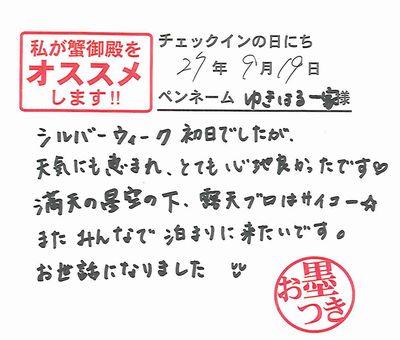 私が蟹御殿を
オススメ
します!!
チェックインの日にち
27年9月19日
ペンネーム ゆきはる一家様
シルバーウィーク初日でしたが、
天気にも恵まれ、とても心地良かったです♡
満天の星空の下、露天ブロはサイコー☆
またみんなで泊まりに来たいです。
お世話になりました
お墨つき